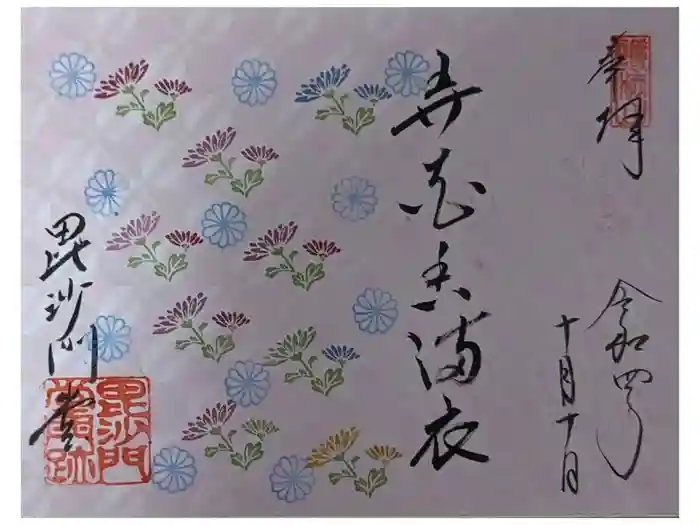 奉拝
令和四年
十月十日
弄花香満衣
毘沙門堂
毘沙門